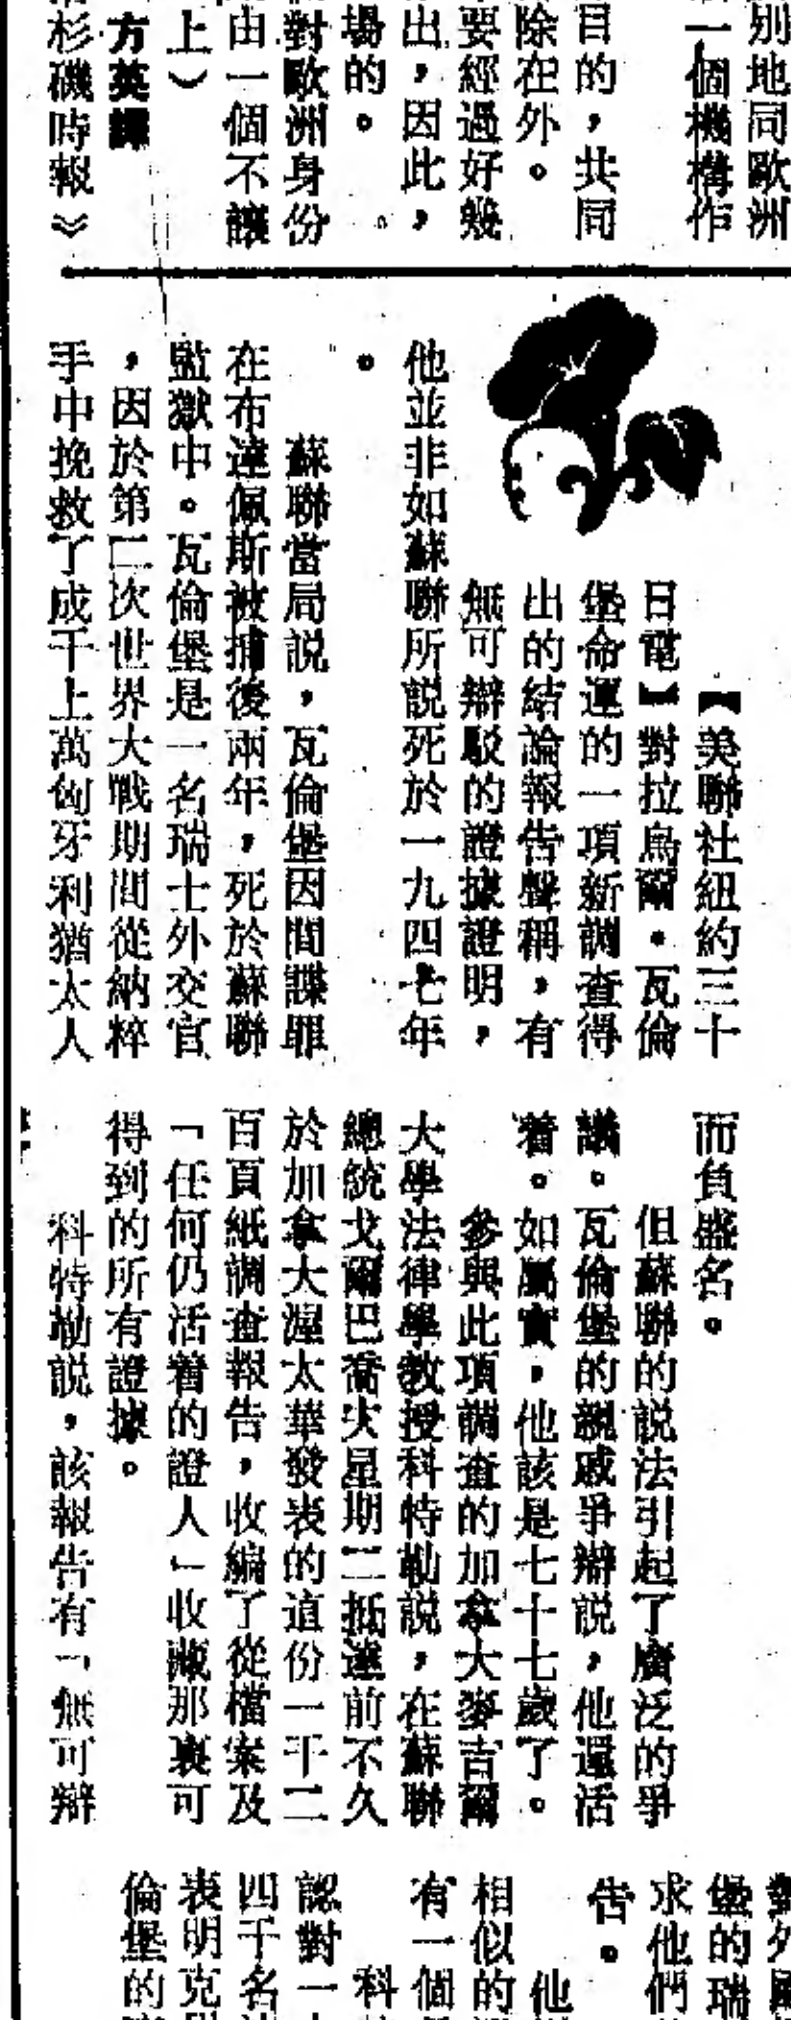 別地同歐洲
一個機構作
目的，共同
除在外。
要經過好幾
出，因此，
場的。
對歐洲身份
由一個不讓
上）
方英譯
杉磯時報》
【美聯社紐約三十
日電】對拉烏爾·瓦倫
堡命運的一項新調查得
出的結論報告聲稱，有
無可辯駁的證據證明，
他並非如蘇聯所説死於一九四七年
。
蘇聯當局説，瓦倫堡因間諜罪
在布達佩斯被捕後兩年，死於蘇聯
監獄中。瓦倫堡是一名瑞士外交官
，因於第二次世界大戰期間從納粹
手中挽救了成千上萬匈牙利猶太人
而負盛名。
但蘇聯的説法引起了廣泛的爭
議。瓦倫堡的親戚爭辯説，他還活
着。如屬實，他該是七十七歲了。
參與此項調查的加拿大麥吉爾
大學法律學教授科特勒説，在蘇聯
總統戈爾巴喬夫星期二抵達前不久
於加拿大渥太華發表的這份一千二
百頁紙調查報告，收編了從檔案及
「任何仍活着的證人」收藏那裏可
得到的所有證據。
科特勒説，該報告有「無可辯
對外
堡的瑞
求他們
告。
他
相似的
有一個
科
認對一
四千名
表明克
倫堡的